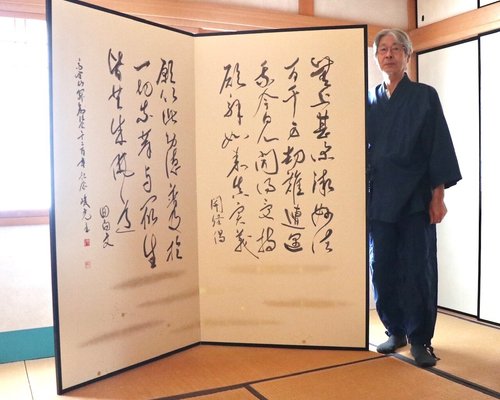 無上甚深微妙法
百千万劫難遭遇
我今見聞得受持
願解如来真実義
開経偈
願以此功徳普及於
一切我等与衆生
皆共成仏道
回向文